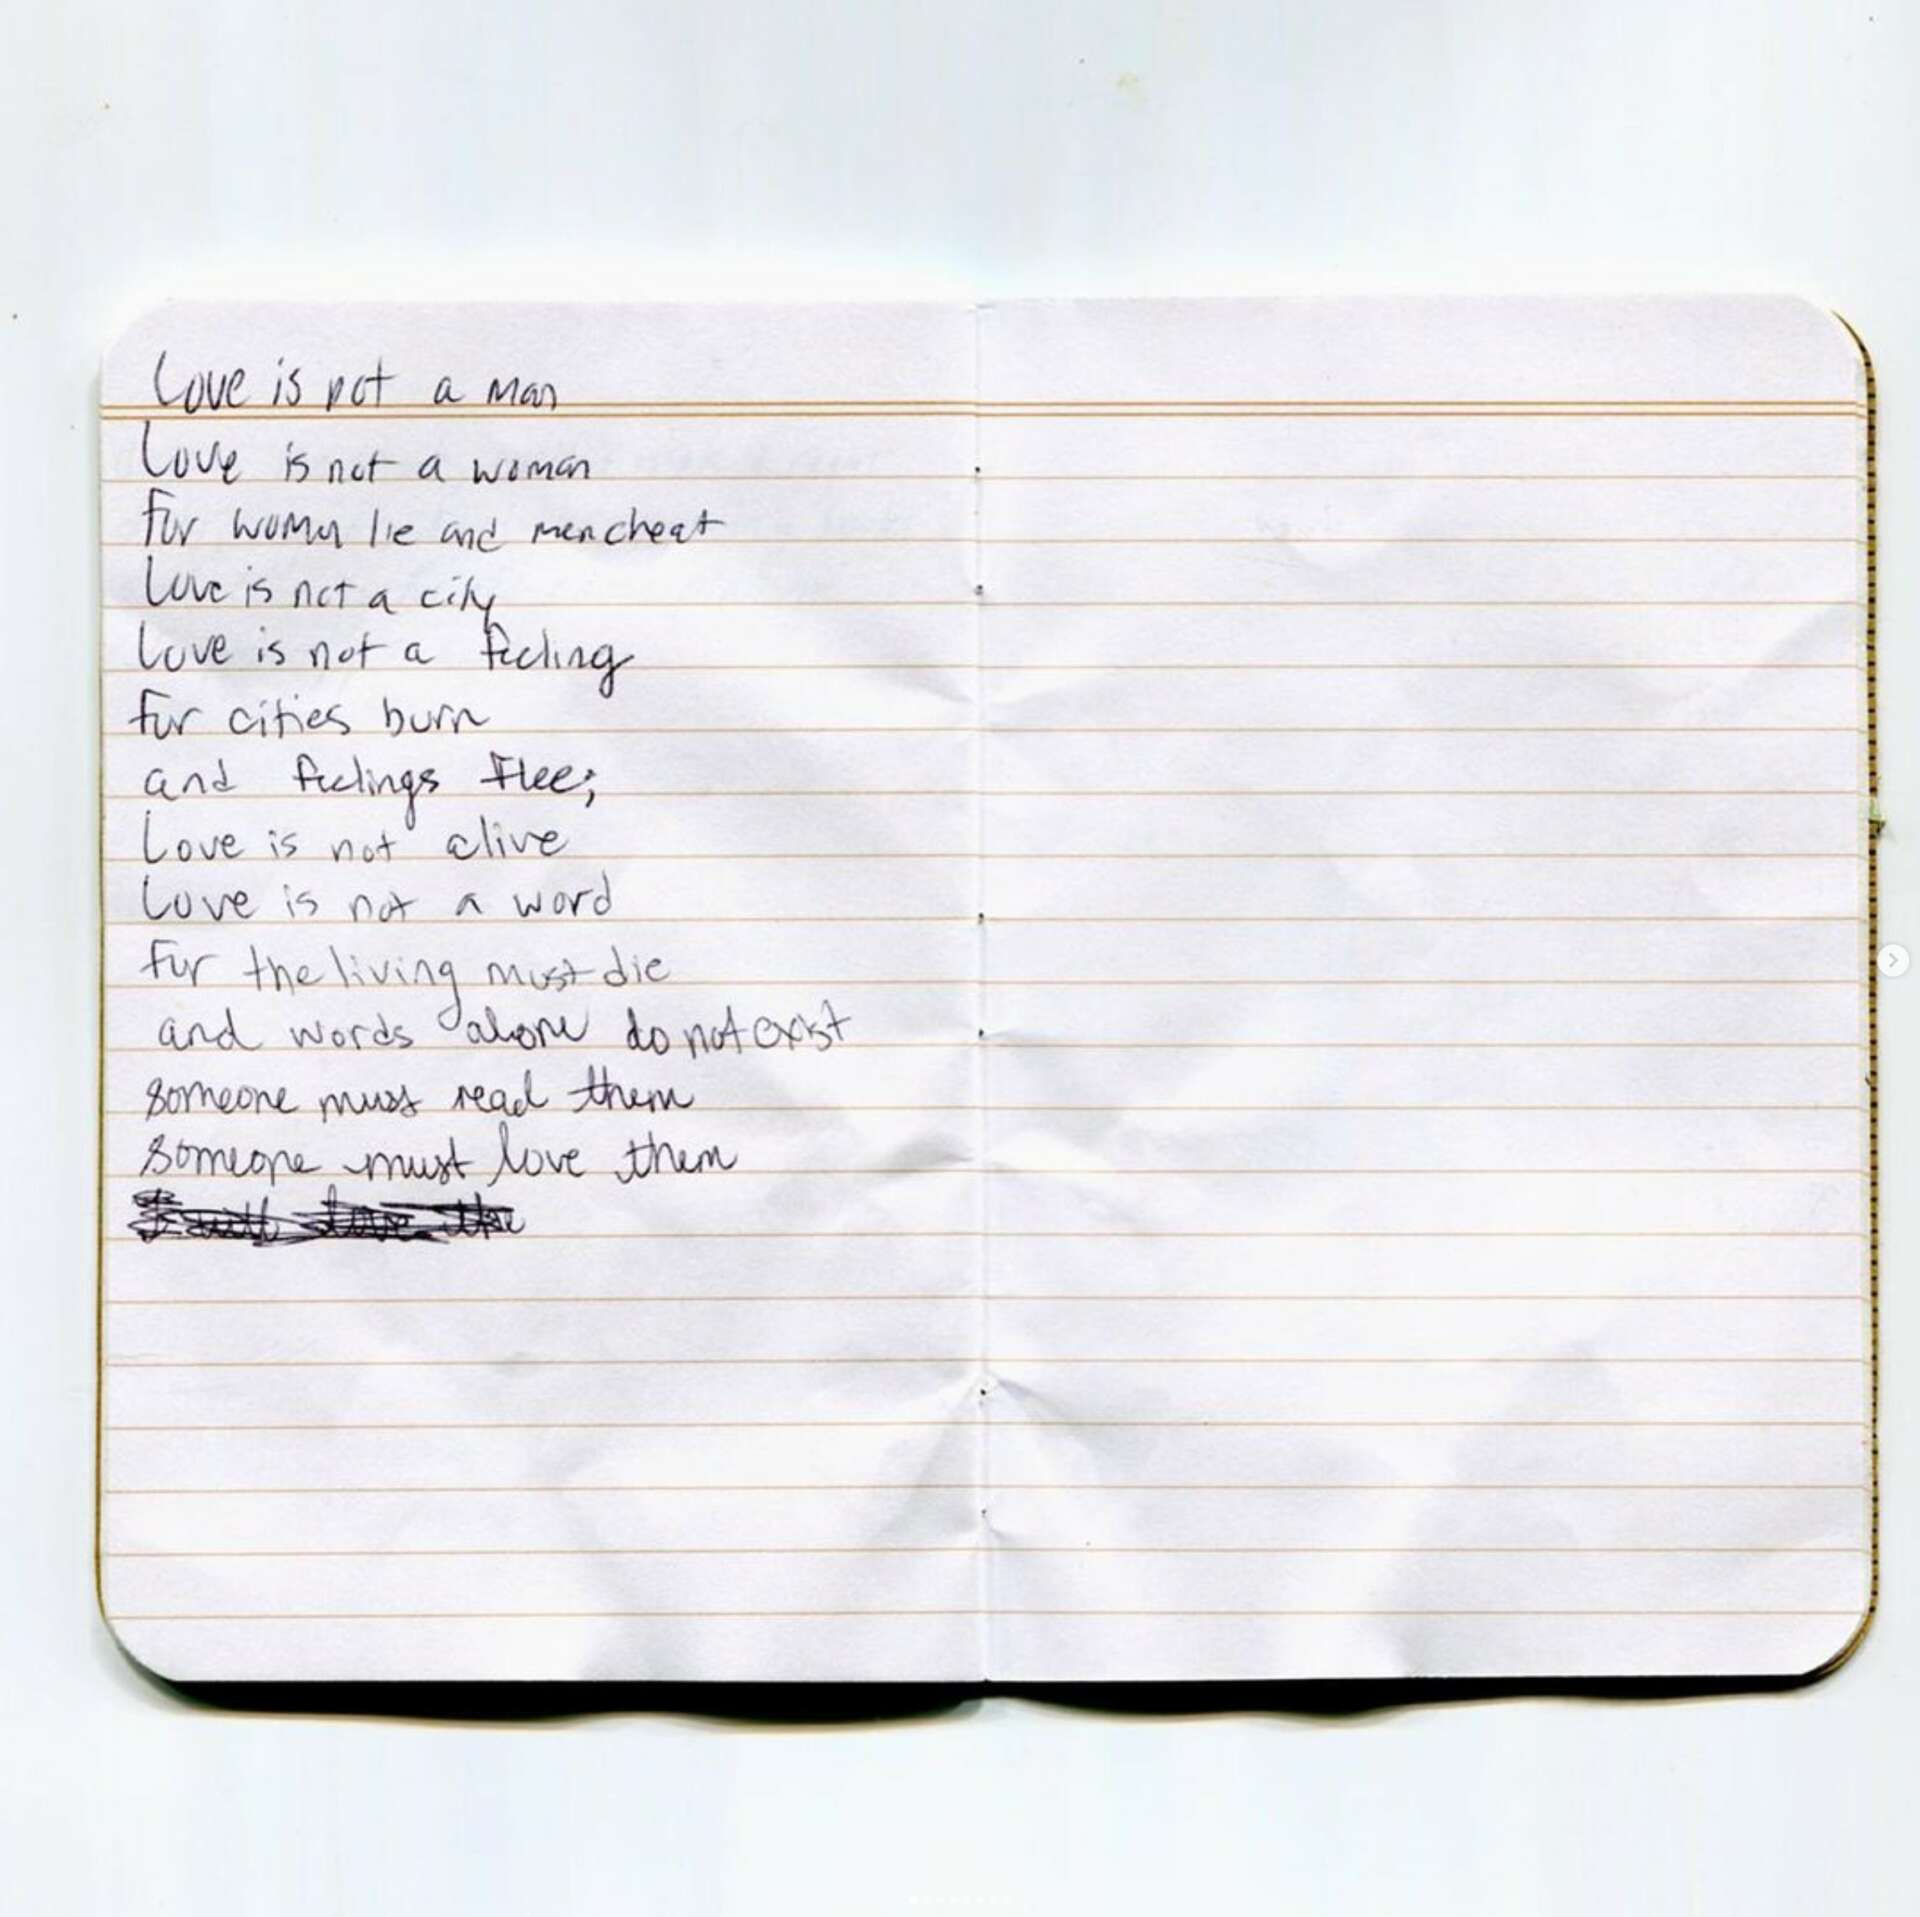 Love is not a man
Love is not a woman
For women lie and men cheat
Love is not a city
Love is not a feeling
For cities burn
and feelings flee;
Love is not alive
Love is not a word
For the living must die
and words alone do not exist
someone must read them
someone must love them